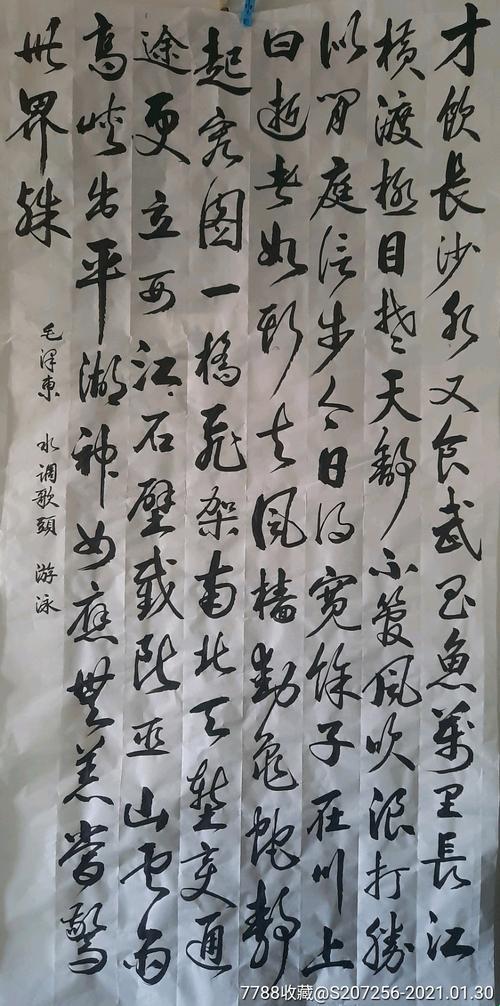 才飲長沙水又食武昌魚萬里長江
橫渡極目楚天舒不管風吹浪打勝
似閒庭信步今日得寬餘子在川上
曰逝者如斯夫風檣動龜蛇靜
起宏圖一橋飛架南北天塹變通
途更立西江石壁截斷巫山雲雨
高峽出平湖神女應無恙當驚
世界殊
毛澤東 水調歌頭 游泳
7788收藏@S207256-2021.01.30